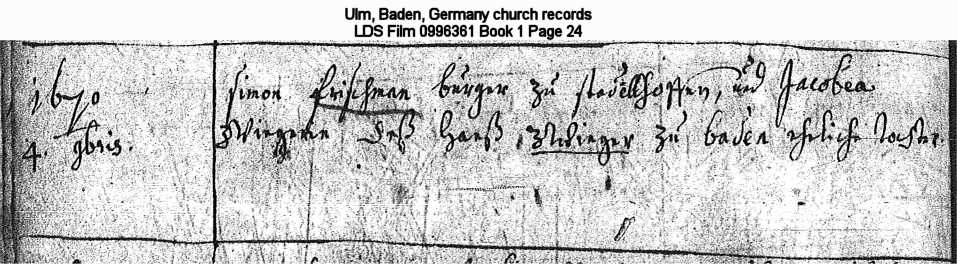 Ulm, Baden, Germany church records
LDS Film 0996361 Book 1 Page 24
1670 Simon Frischman burger zu stadellhoffen, und Jacobea
4. 9bris. Zwiegerin deß Hanß Zwieger zu baden ehrliche tochter.